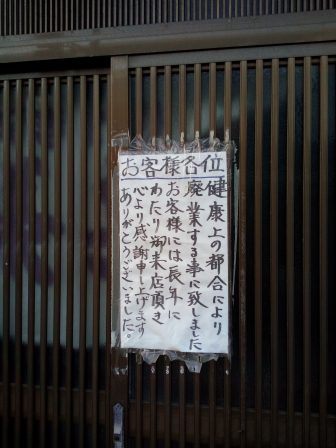 お客様各位
健康上の都合により
廃業する事に致しました
お客様には長年に
わたり御来店頂き
心より感謝申し上げます
ありがとうございました。